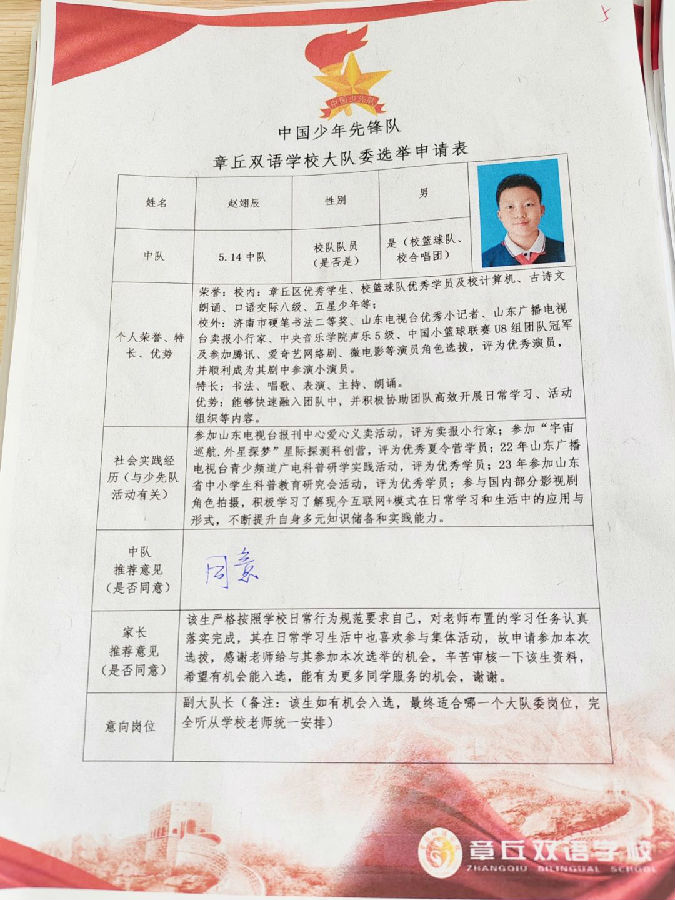 中国少先队
中国少年先锋队
章丘双语学校大队委选举申请表
姓名
赵翊辰
性别
男
中队
5.14中队
校队队员
（是否是）
是（校篮球队、
校合唱团）
个人荣誉、特
长、优势
荣誉：校内：章丘区优秀学生、校篮球队优秀学员及校计算机、古诗文
朗诵、口语交际八级、五星少年等；
校外：济南市硬笔书法二等奖、山东电视台优秀小记者、山东广播电视
台卖报小行家、中央音乐学院声乐5级、中国小篮球联赛U8组团队冠军
及参加腾讯、爱奇艺网络剧、微电影等演员角色选拔，评为优秀演员，
并顺利成为其剧中参演小演员。
特长：书法、唱歌、表演、主持、朗诵。
优势：能够快速融入团队中，并积极协助团队高效开展日常学习、活动
组织等内容。
社会实践经
历（与少先队
活动有关）
参加山东电视台报刊中心爱心义卖活动，评为卖报小行家；参加“宇宙
巡航.外星探梦”星际探测科创营，评为优秀夏令营学员；22年山东广播
电视台青少频道广电科普研学实践活动，评为优秀学员；23年参加山东
省中小学生科普教育研究会活动，评为优秀学员；参与国内部分影视剧
角色拍摄，积极学习了解现今互联网+模式在日常学习和生活中的应用与
形式，不断提升自身多元知识储备和实践能力。
中队
推荐意见
（是否同意）
同意
家长
推荐意见
（是否同意）
该生严格按照学校日常行为规范要求自己，对老师布置的学习任务认真
落实完成，其在日常学习生活中也喜欢参与集体活动，故申请参加本次
选拔，感谢老师给与其参加本次选举的机会，辛苦审核一下该生资料，
希望有机会能入选，能有为更多同学服务的机会，谢谢。
意向岗位
副大队长（备注：该生如有机会入选，最终适合哪一个大队委岗位，完
全听从学校老师统一安排）
章丘双语学校
ZHANGQIU BILINGUAL SCHOOL